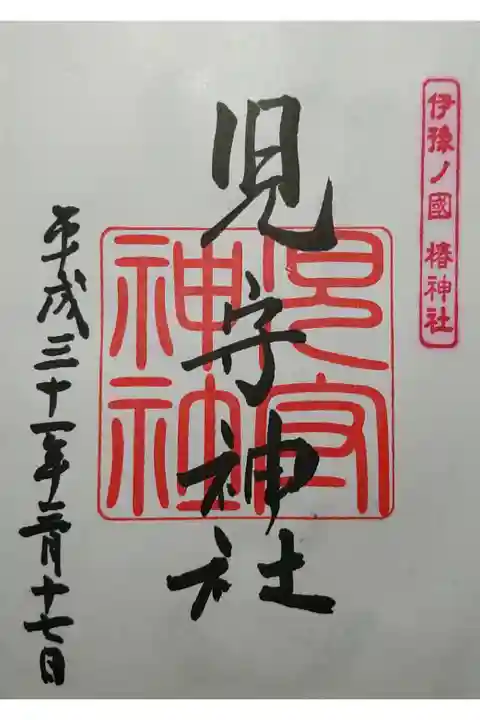 伊豫ノ國 椿神社
児守神社
児守神社
平成三十一年二月十七日